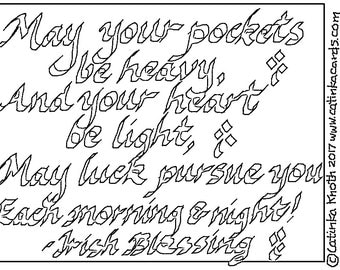 May your pockets
be heavy,
And your heart
be light,
May luck pursue you
Each morning & night!
-Irish Blessing
©Catinka Knoth 2017 www.catinkacards.com